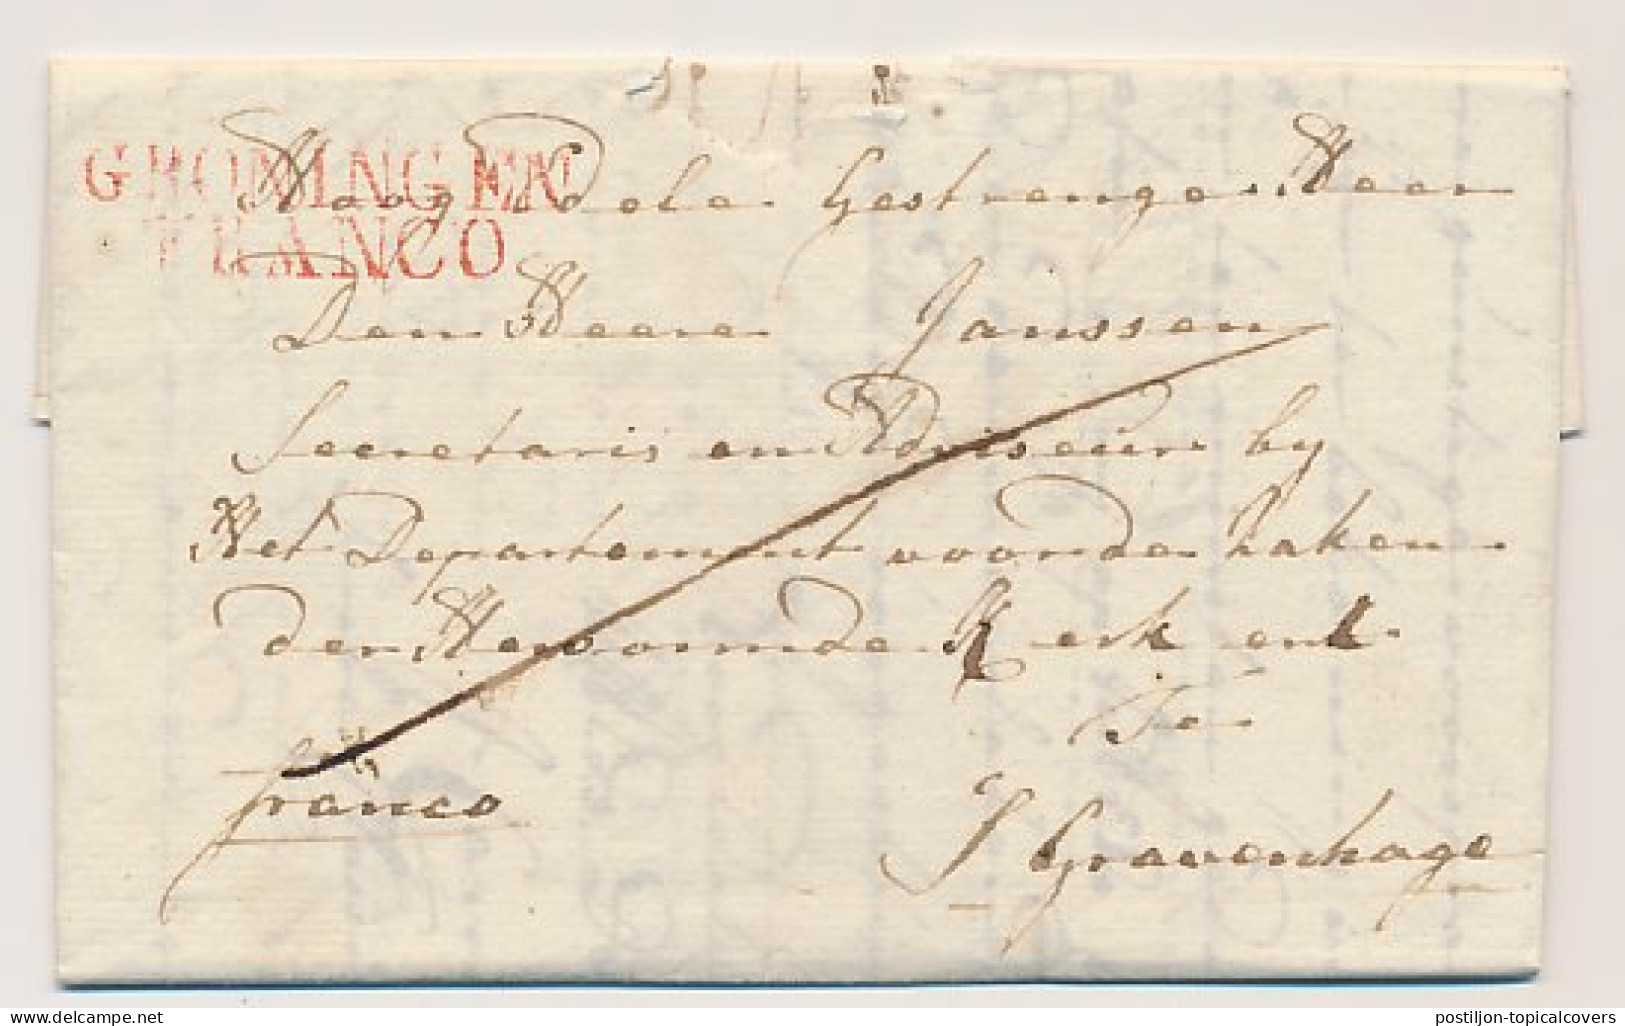 GRONINGEN
FRANCO
Hoog Edele Gestrenge Heer
Den Heere Janssen
Secretaris en Adviseur by
Het Departement voor de Zaken
der Hervormde Kerk enz
Te
S Gravenhage
franco
delcampe.net
postiljon-topicalcovers